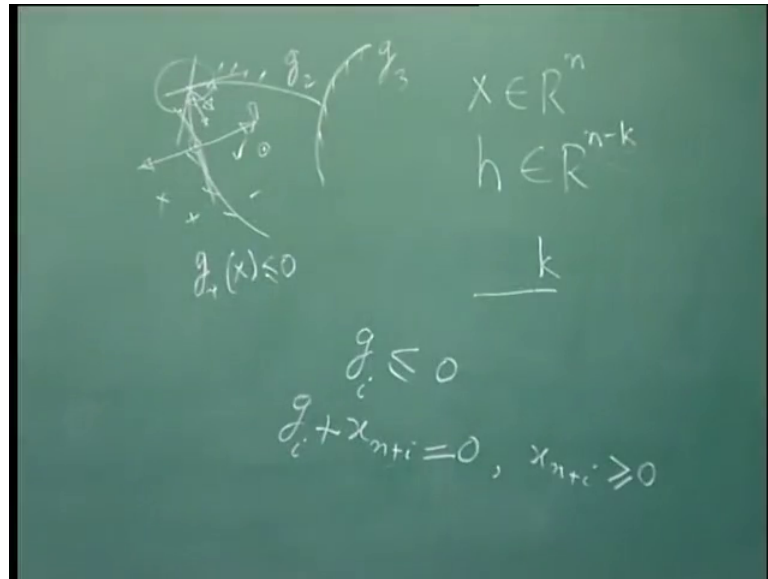 g₂ g₃
x ∈ Rⁿ
h ∈ Rⁿ⁻ᵏ
g₁(x) ≤ 0
k
gᵢ ≤ 0
gᵢ + xₙ₊ᵢ = 0, xₙ₊ᵢ ≥ 0